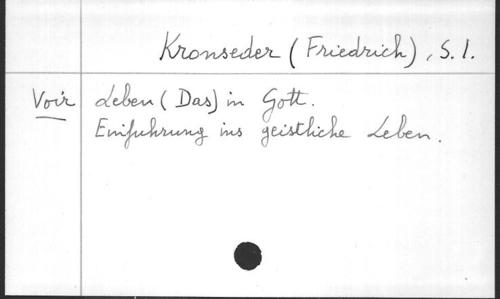 Kronseder (Friedrich), S. I.
Voir Leben (Das) in Gott.
Einfuhrung ins geistliche Leben.